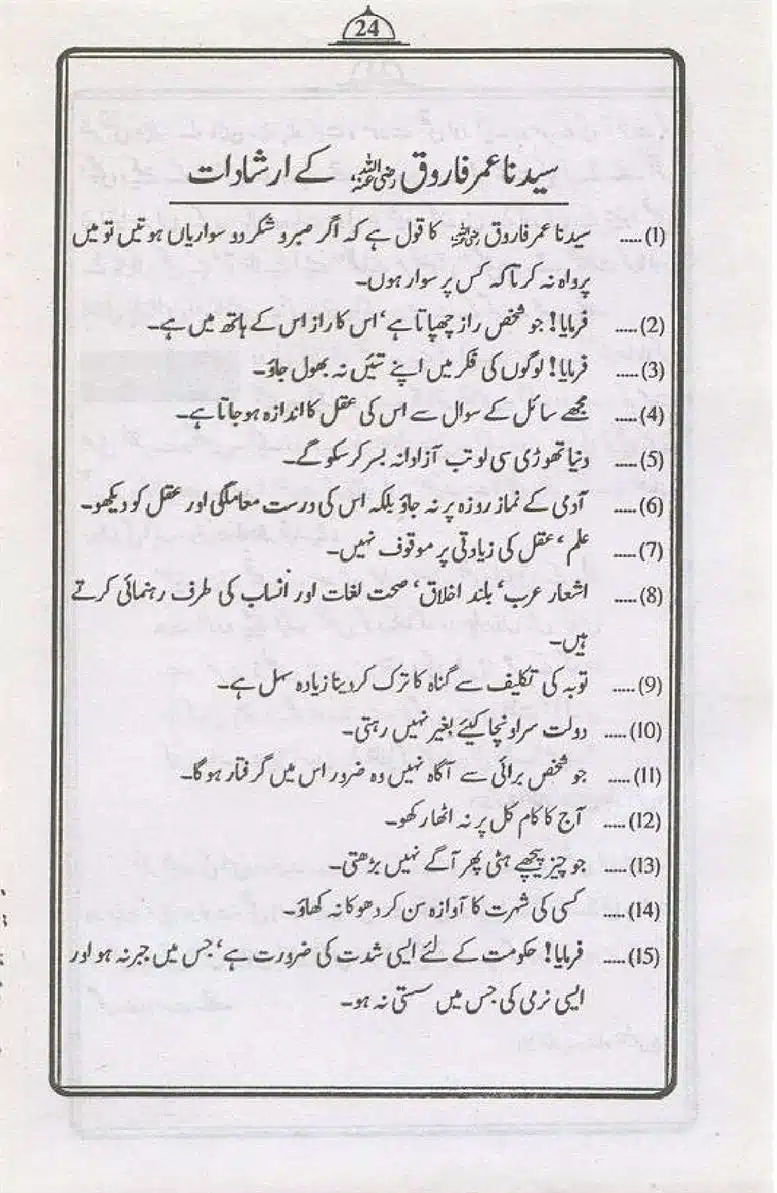 24
سیدنا عمر فاروق رضی اللہ عنہ کے ارشادات
(1)..... سیدنا عمر فاروق رضی اللہ عنہ کا قول ہے کہ اگر صبر و شکر دو سواریاں ہوتیں تو میں
پرواہ نہ کرتا کہ کس پر سوار ہوں۔
(2)..... فرمایا! جو شخص راز چھپاتا ہے‘ اس کا راز اس کے ہاتھ میں ہے۔
(3)..... فرمایا! لوگوں کی فکر میں اپنے تئیں نہ بھول جاؤ۔
(4)..... مجھے سائل کے سوال سے اس کی عقل کا اندازہ ہو جاتا ہے۔
(5)..... دنیا تھوڑی سی لو تب آزادانہ بسر کر سکو گے۔
(6)..... آدمی کے نماز روزہ پر نہ جاؤ بلکہ اس کی درست معاملگی اور عقل کو دیکھو۔
(7)..... علم‘ عقل کی زیادتی پر موقوف نہیں۔
(8)..... اشعار عرب‘ بلند اخلاق‘ صحت لغات اور انساب کی طرف رہنمائی کرتے
ہیں۔
(9)..... توبہ کی تکلیف سے گناہ کا ترک کر دینا زیادہ سہل ہے۔
(10)..... دولت سر اونچا کیئے بغیر نہیں رہتی۔
(11)..... جو شخص برائی سے آگاہ نہیں وہ ضرور اس میں گرفتار ہو گا۔
(12)..... آج کا کام کل پر نہ اٹھا رکھو۔
(13)..... جو چیز پیچھے ہٹی پھر آگے نہیں بڑھتی۔
(14)..... کسی کی شہرت کا آوازہ سن کر دھوکا نہ کھاؤ۔
(15)..... فرمایا! حکومت کے لئے ایسی شدت کی ضرورت ہے‘ جس میں جبر نہ ہو اور
ایسی نرمی کی جس میں سستی نہ ہو۔